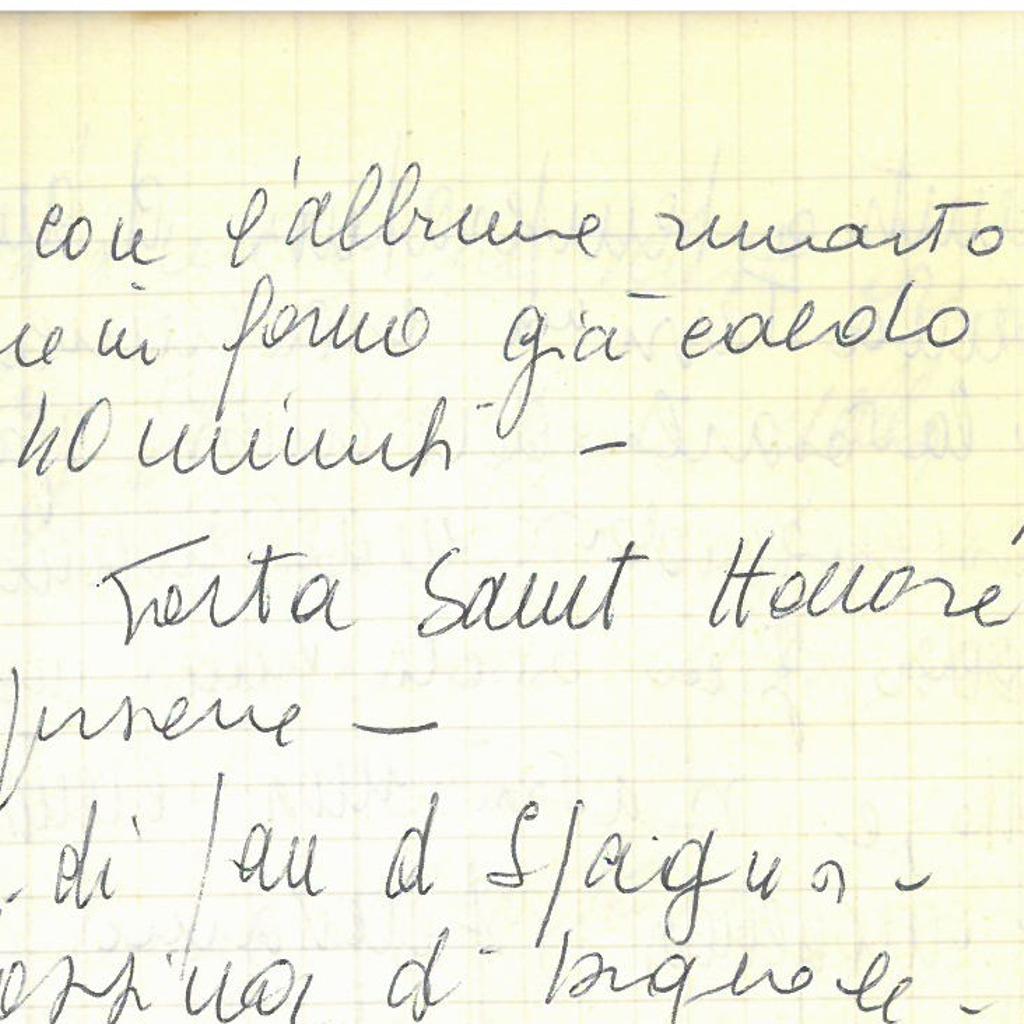 con l'albume rimasto
in forno già caldo
40 minuti -
Torta Saint Honoré
di pan d Spagna -
d bignole -